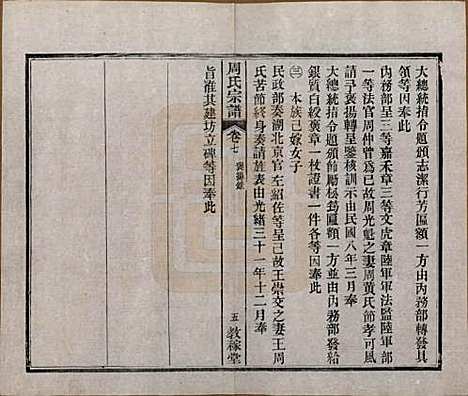 大總統指令題頒志潔行芳匾額一方由內務部轉發具
領等因奉此
內務部呈三等嘉禾章三等文虎章陸軍軍法監陸軍部
一等法官周仲曾爲已故周光魁之妻周黃氏節孝可風
請予褒揚轉呈鑒核訓示由民國八年三月奉
大總統指令題頒節勵松筠匾額一方並由內務部發給
銀質白綬褒章一枚證書一件各等因奉此
㊂ 本族已嫁女子
民政部奏湖北京官左紹佐等呈已故王崇交之妻王周
氏苦節終身奏請旌表由光緒三十一年十二月奉
旨准其建坊立碑等因奉此
周氏宗譜
卷七
五
敦稼堂